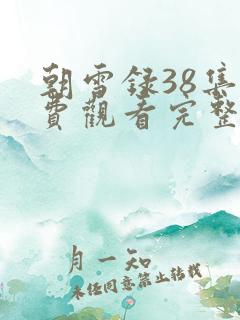 朝雪録38集
費觀看完整
月一知
未经同意禁止转载